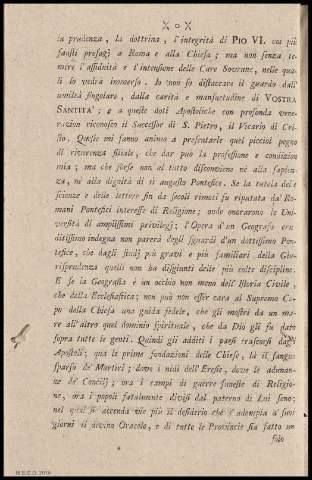 X o X
la prudenza, la dottrina, l'integrità di PIO VI. coi più
fausti presagj a Roma e alla Chiesa; ma non senza te-
mere l'assiduità e l'intensione delle Cure Sovrane, nelle qua-
li lo vedrà immerso. Io non so distaccare il guardo dall'
umiltà singolare, dalla carità e mansuetudine di VOSTRA
SANTITA'; e a queste doti Apostoliche con profonda vene-
razion riconosco il Successor di S. Pietro, il Vicario di Cri-
sto. Queste mi fanno animo a presentarle quel picciol pegno
di riverenza filiale, che dar può la professione e condizion
mia; ma che forse non al tutto disconviene nè alla sapien-
za, nè alla dignità di sì augusto Pontefice. Se la tutela delle
scienze e delle lettere fin da secoli rimoti fu riputata da' Ro-
mani Pontefici interesse di Religione; onde onorarono le Uni-
versità di amplissimi privilegj; l'Opera d'un Geografo eru-
ditissimo indegna non parerà degli sguardi d'un dottissimo Pon-
tefice, che dagli studj più gravi e più familiari della Giu-
risprudenza quelli non ha disgiunti delle più colte discipline.
E se la Geografia è un occhio non meno dell'Istoria Civile,
che della Ecclesiastica; non può non esser cara al Supremo Ca-
po della Chiesa una guida fedele, che gli mostri da un ma-
re all'altro quel dominio spirituale, che da Dio gli fu dato
sopra tutte le genti. Quindi gli additi i paesi trascorsi dagli
Apostoli; qua le prime fondazioni delle Chiese, là il sangue
sparso de' Martiri; dove i nidi dell'Eresie, dove le adunan-
ze de' Concilj; ora i campi di guerre funeste di Religio-
ne, ora i popoli fatalmente divisi dal paterno di Lui seno;
nel qual si accenda vie più il desiderio che s'adempia a suoi
giorni il divino Oracolo, e di tutte le Provincie sia fatto un
solo